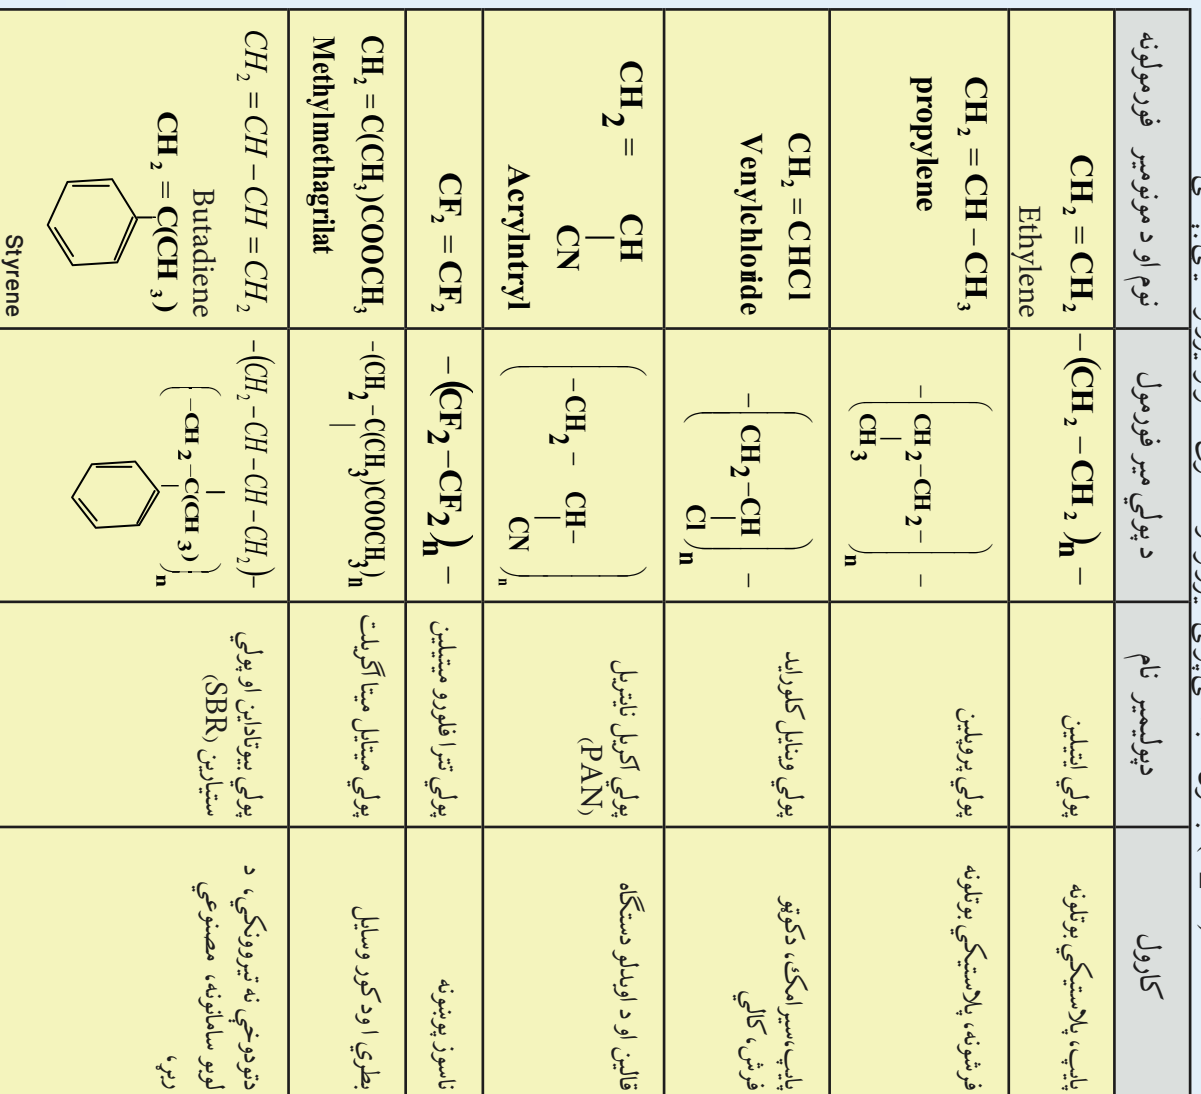 فورمولونه نوم او د مونومير
د پولي مير فورمول
دپوليمير نام
کارول
CH₂ = CH₂
Ethylene
–(CH₂ – CH₂)n –
پولي ايتيلين
پايپ، پلاستيکي بوتلونه
CH₂ = CH – CH₃
propylene
– ( CH₂–CH₂– ) –
CH₃ n
پولي پروپلين
فرشونه، پلاستيکي بوتلونه
CH₂ = CHCl
Venylchloride
– ( CH₂–CH ) –
Cl n
پولي وينايل کلورايد
پايپ،سيرامک، دکوټو
فرش، کالي
CH₂ = CH
CN
Acrylntryl
( –CH₂ – CH– )
CN n
پولي اکريل نايتريل
(PAN)
قالين او د اوبدلو دستگاه
CF₂ = CF₂
–(CF₂–CF₂)n –
پولي تترا فلورو ميتيلين
ناسوز پوښونه
CH₂ = C(CH₃)COOCH₃
Methylmethagrilat
–(CH₂–C(CH₃)COOCH₃)n
پولي ميتايل ميتا اگريلت
بطري اود کور وسايل
CH₂ = CH – CH = CH₂
Butadiene
CH₂ = C(CH₃)
Styrene
–(CH₂–CH–CH–CH₂)–
( –CH₂–C(CH₃) )n
پولي بيوتاداين او پولي
ستيارين (SBR)
دتودوخي نه تيروونکي، د
لوبو سامانونه، مصنوعي
ربړ،